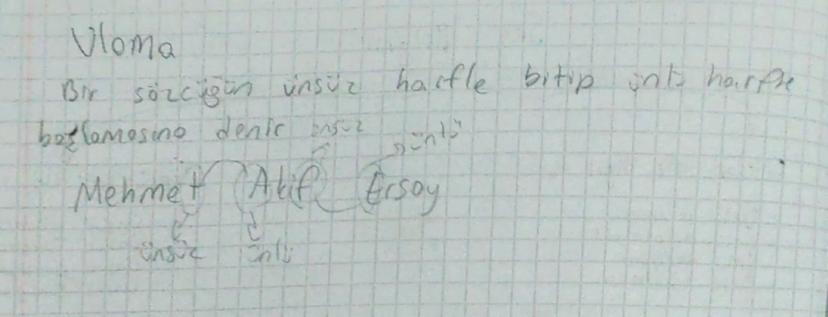 Uloma
Bir sözcüğün ünsüz harfle bitip ünlü harfle
başlamasına denir ünsüz
ünlü
Mehmet Akif Ersoy
ünsüz ünlü